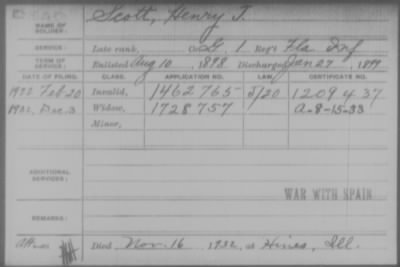 NAME OF SOLDIER: Scott, Henry T.
SERVICE: Late rank, Co. G, 1 Reg't Fla Inf
TERM OF SERVICE: Enlisted Aug 10, 1898 Discharged Jan 27, 1899
DATE OF FILING. CLASS. APPLICATION NO. LAW. CERTIFICATE NO.
1922 Feb 20 Invalid, 1462765 5/20 1209437
1932, Dec. 3 Widow, 1728757 A-8-15-33
Minor,
ADDITIONAL SERVICES:
WAR WITH SPAIN
REMARKS:
Died Nov. 16 1932, at Hines, Ill.